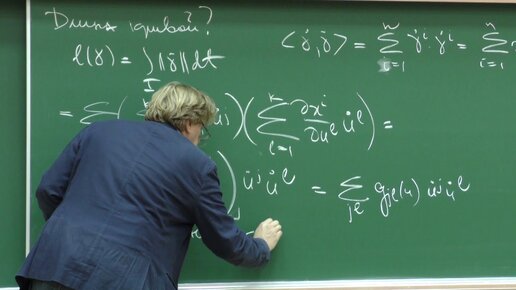 Длина кривой?
l(γ) = ∫_I ||γ̇|| dt
<γ̇, γ̇> = Σ_{i=1}^{n} γ̇^i · γ̇^i = Σ_{i=1}^{n}
= Σ ( u̇^j)( Σ_{l=1}^{k} ∂x^i/∂u^l u̇^l ) =
) u̇^j u̇^l = Σ_{jl} g_{jl}(u) u̇^j u̇^l